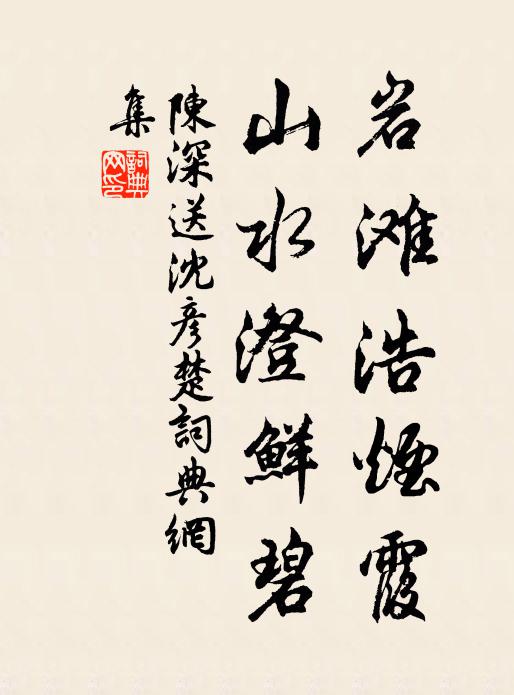 岩滩浩煙霞
山水澄鮮碧
陳深送沈彦楚詞典網
集
詞典網印